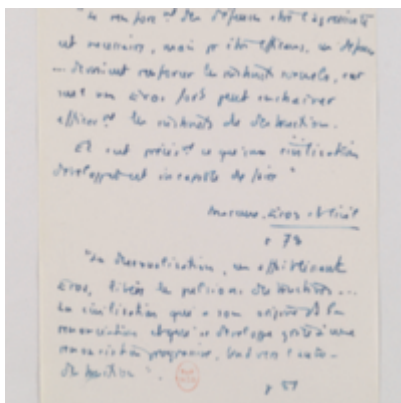 "Le renforc^t des défenses contre l'agressivité
est nécessaire, mais pr être efficaces, ces défenses
... devraient renforcer les instincts sexuels, car
seul un Eros fort peut enchaîner
effic^t les instincts de destruction.
Et c'est précis^t ce que la civilisation
développée est incapable de faire"
Marcuse, Eros et Civil
p 78
"La désexualisation, en affaiblissant
Eros, libère les pulsions destructrices...
La civilisation qui a son origine ds la
renonciation et qui se développe grâce à une
renonciation progressive, tend vers l'auto-
destruction".
p 81